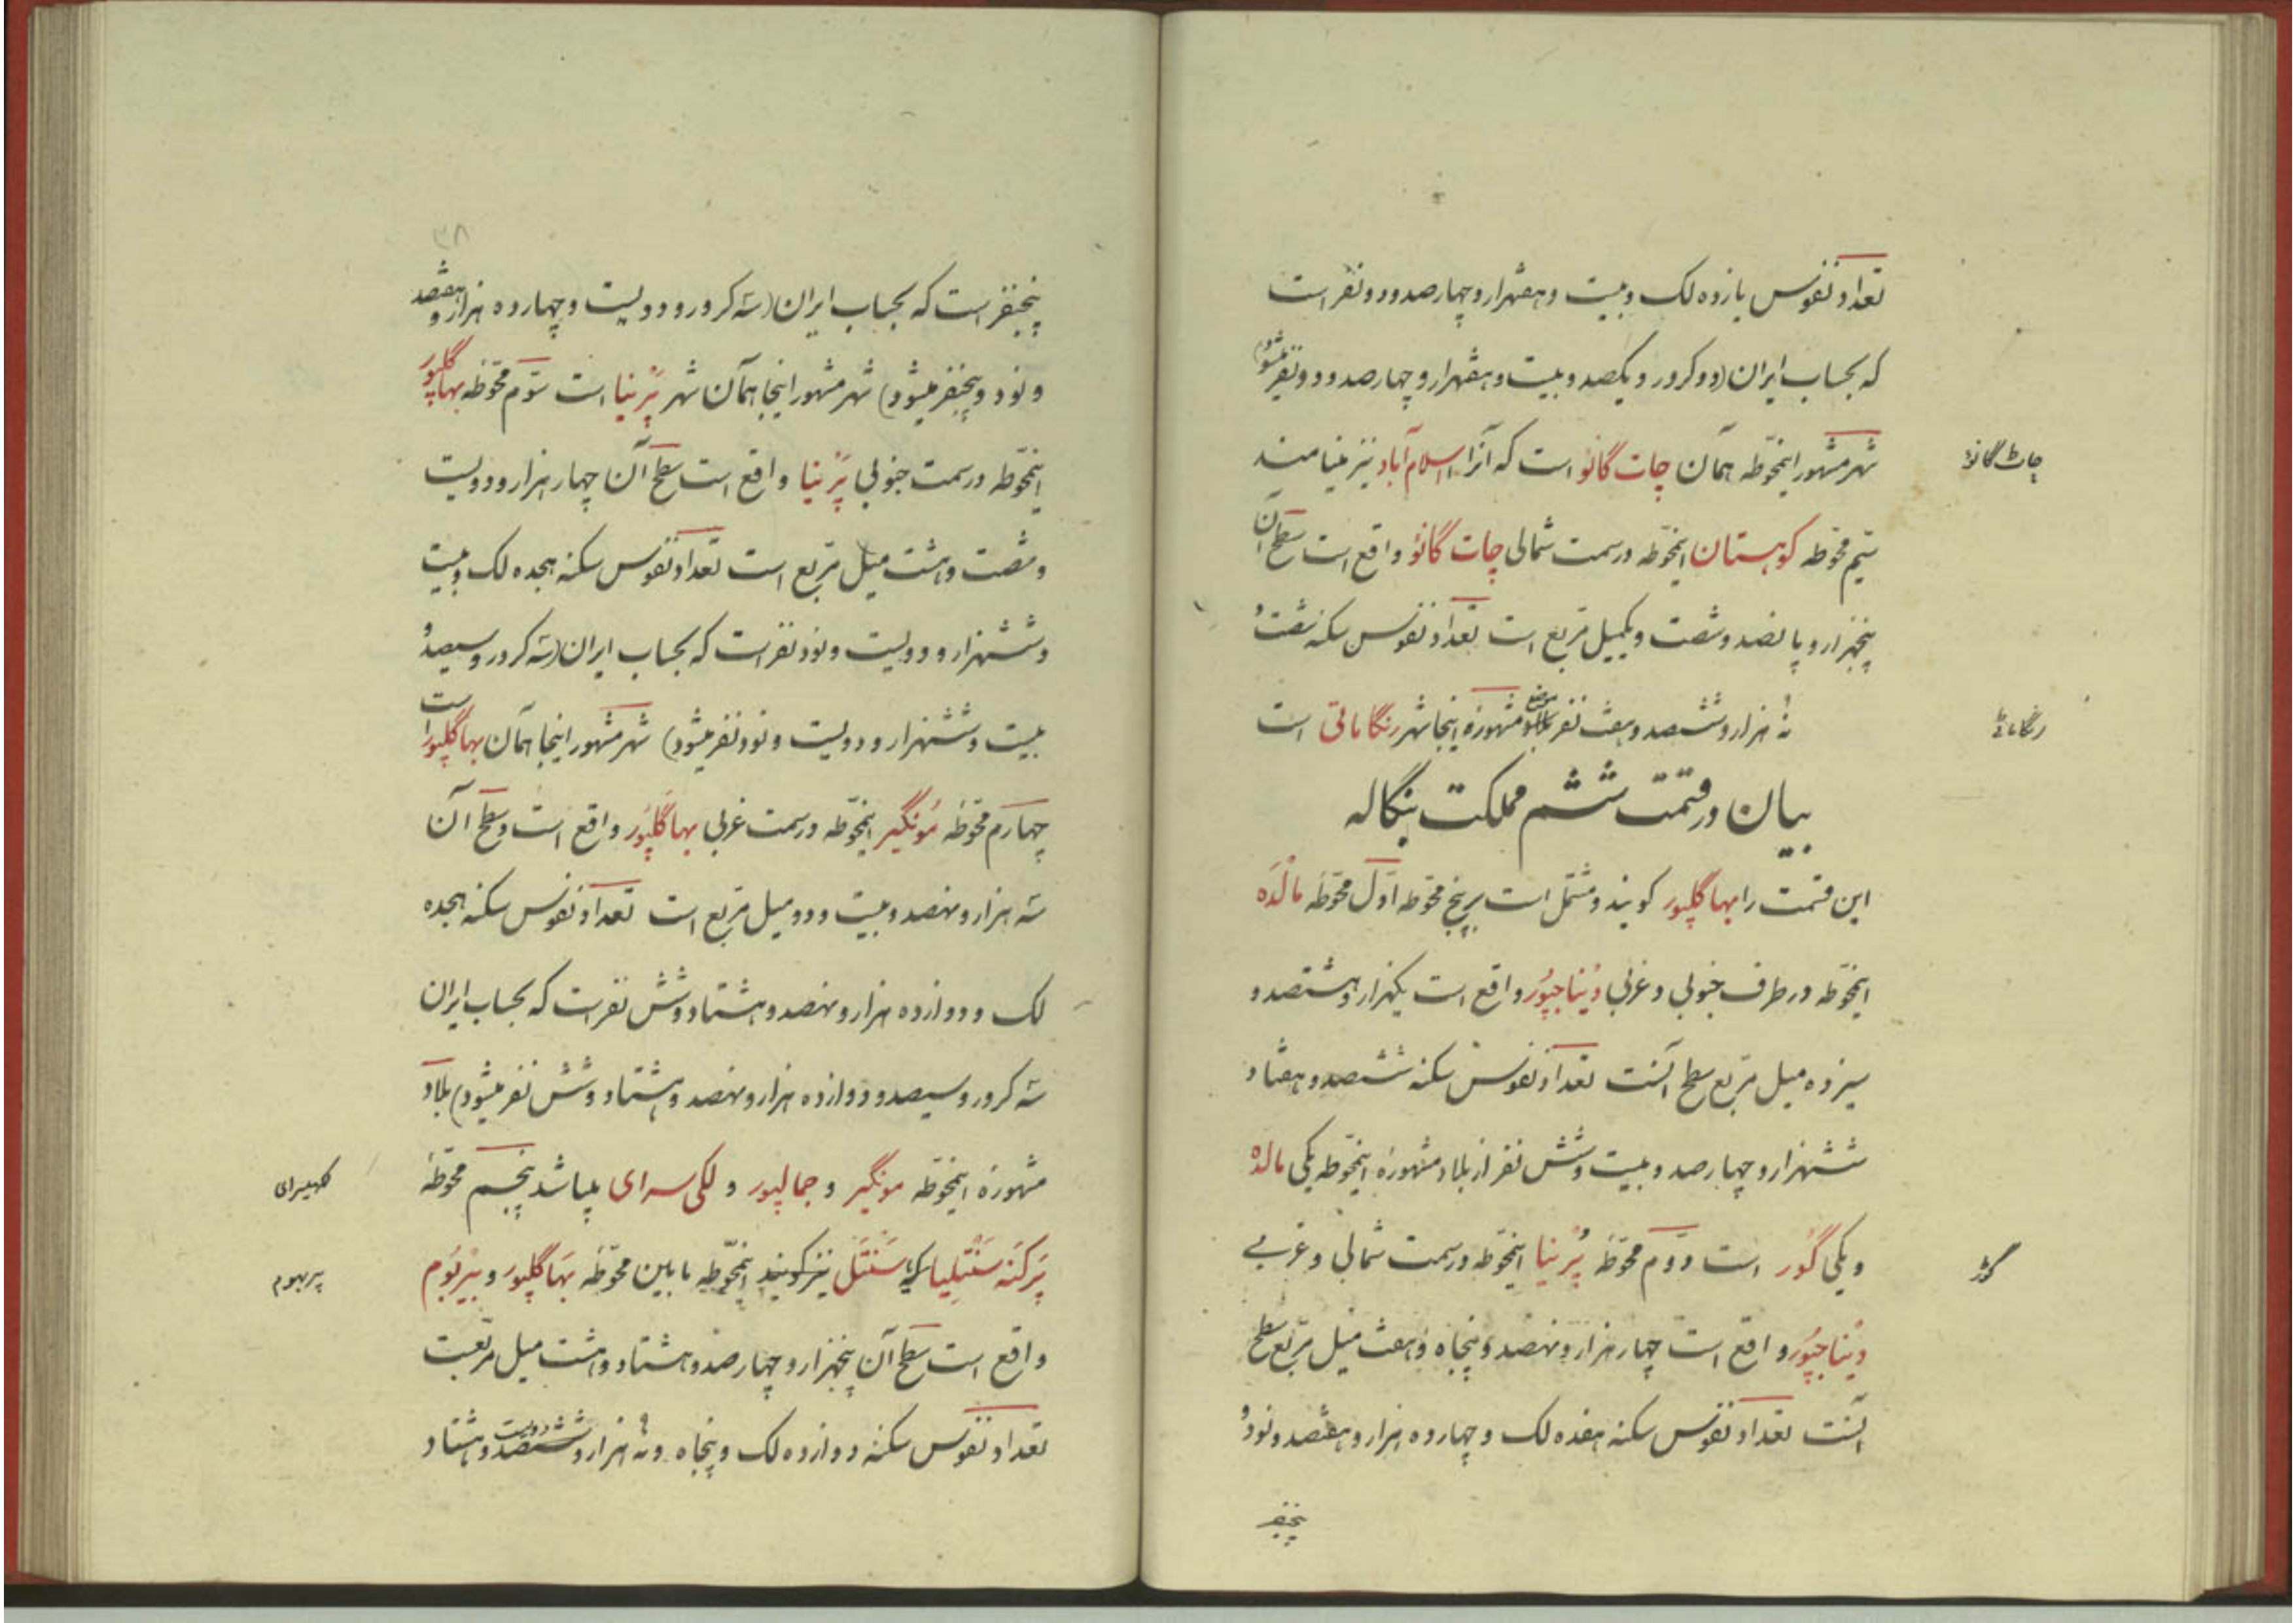 تعداد نفوس یازده لک و بیست و هفتهزار و چهارصد و دو نفر است
که بحساب ایران (دو کرور و یکصد و بیست و هفتهزار و چهارصد و دو نفر میشود)
شهر مشهور اینمحوّطه همآن چات گانو است که آنرا اسلام آباد نیز مینامند
چات گانو
نهم محوّطه کوهستان اینمحوّطه در سمت شمالی چات گانو واقع است سطح آن
پنجهزار و پانصد و شصت و یکمیل مربّع است تعداد نفوس سکنه شصت و
نه هزار و ششصد و هفت نفر موضع مشهورۀ اینجا شهر رنگاماتی است
رنگاماٹے
بیان در قسمت ششم مملکت بنگاله
این قسمت را بهاگلپور گویند و مشتمل است بر پنج محوّطه اوّل محوّطه مالْدَه
اینمحوّطه در طرف جنوبی و غربی دیناجپُور واقع است یکهزار و هشتصد و
سیزده میل مربّع سطح آنست تعداد نفوس سکنه ششصد و هفتاد و
ششهزار و چهارصد و بیست و شش نفر از بلاد مشهورۀ اینمحوّطه یکی مالده
و یکی گور است دوّم محوّطه پُرنیا اینمحوّطه در سمت شمالی و غربے
گوڑ
دیناجپُور واقع است چهار هزار و نهصد و پنجاه و هفت میل مربّع سطح
آنست تعداد نفوس سکنه هفده لک و چهارده هزار و هفتصد و نود و
پنجنفر
۳۸
پنجنفر است که بحساب ایران (سه کرور و دویست و چهارده هزار و هفتصد
و نود و پنجنفر میشود) شهر مشهور اینجا همآن شهر پُرنیا است سوّم محوّطه بهاگلپور
اینمحوّطه در سمت جنوبی پُرنیا واقع است سطح آن چهار هزار و دویست
و شصت و هشت میل مربّع است تعداد نفوس سکنه هجده لک و بیست
و ششهزار و دویست و نود نفر است که بحساب ایران (سه کرور و سیصد و
بیست و ششهزار و دویست و نود نفر میشود) شهر مشهور اینجا همآن بهاگلپور است
چهارم محوّطه مُونگیر اینمحوّطه در سمت غربی بهاگلپُور واقع است و سطح آن
سه هزار و نهصد و بیست و دو میل مربّع است تعداد نفوس سکنه هجده
لک و دوازده هزار و نهصد و هشتاد و شش نفر است که بحساب ایران
سه کرور و سیصد و دوازده هزار و نهصد و هشتاد و شش نفر میشود) بلاد
مشهورۀ اینمحوّطه مونگیر و جمالپور و لکی سرای میباشد پنجم محوّطه
پَرکَنه سَنْتِلیا که سَنْتَل نیز گویند اینمحوّطه مابین محوّطه بَهاگلپور و بیربُوم
بیربهوم
واقع است سطح آن پنجهزار و چهارصد و هشتاد و هشت میل مربّعست
تعداد نفوس سکنه دوازده لک و پنجاه و نه هزار و دویست و هشتاد